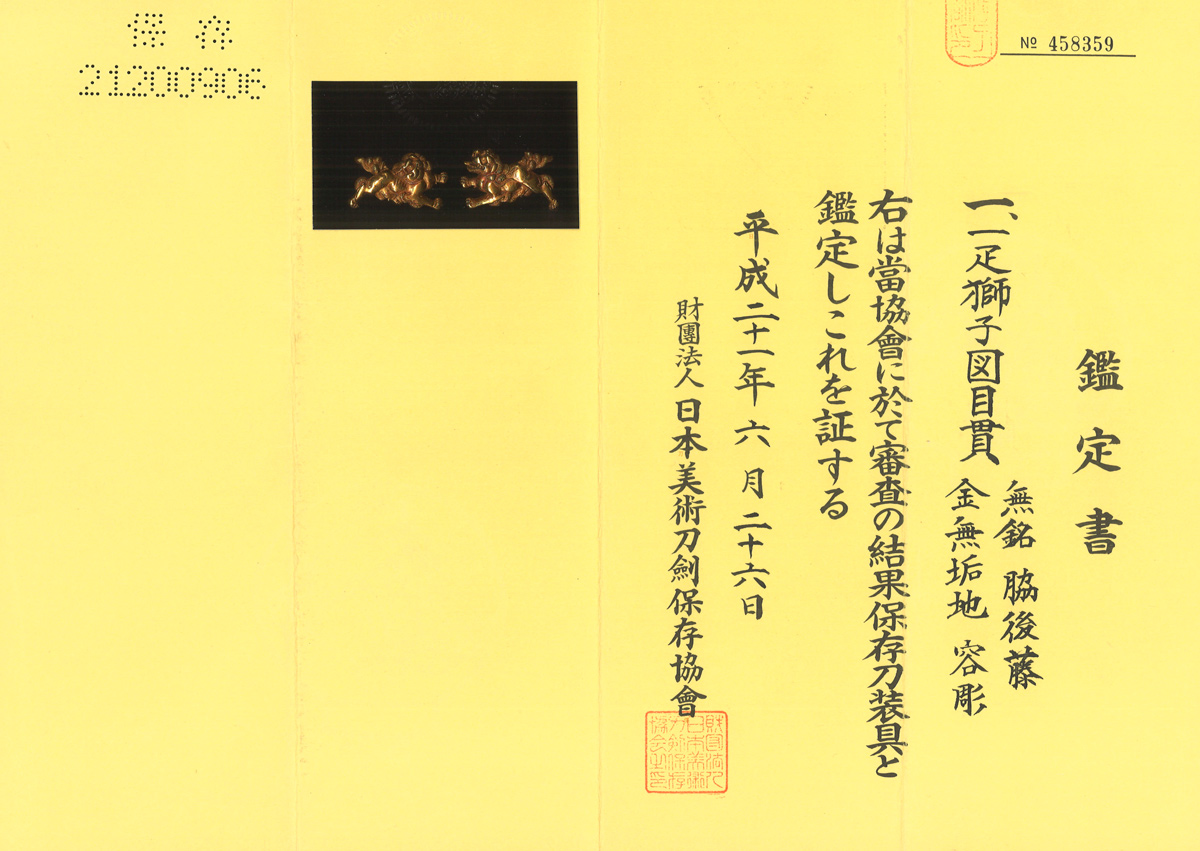 鑑定書
一、一疋獅子図目貫
無銘 脇後藤
金無垢地 容彫
右は當協會に於て審査の結果保存刀装具と
鑑定しこれを証する
平成二十一年 六 月 二十六日
財團法人 日本美術刀劍保存協會
№ 458359
保存
21200906